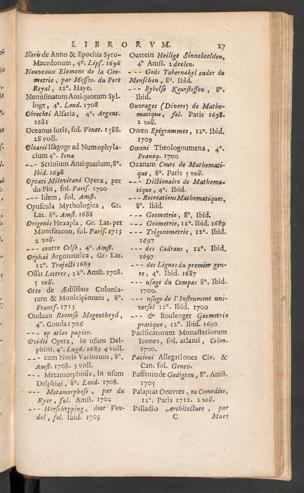 LIBRORVM. 27
Noris de Anno & Epochis Syro-
Macedonum, 4º. Lips. 1696
Nouveaux Elemens de la Geo-
metrie, par Messrs. du Port
Royal, 12º. Haye.
Numismatum Antiquorum Syl-
loge, 4º. Lond. 1708
Obrechti Alsatia, 4º. Argent.
1681
Oceanus Juris, fol. Venet. 1588.
28 voll.
Olearii Isagoge ad Numophyla-
cium 4º. Iena
--- Scrinium Antiquarium, 8º.
Ibid. 1698
Optati Milevitani Opera, per
du Pin, fol. Paris. 1700
--- Idem, fol. Amst.
Opuscula Mythologica, Gr.
Lat. 8º. Amst. 1688
Origenis Hexapla, Gr. Lat. per
Montfaucon, fol. Paris. 1713
2 voll.
--- contre Celse, 4º. Amst.
Orphei Argonautica, Gr. Lat.
12º. Trajecti 1689
Ossat Lettres, 12º. Amst. 1708.
5 voll.
Otto de Ædilibus Colonia-
rum & Municipiorum, 8º.
Francf. 1713
Oudaan Roomse Mogentheyd,
4º. Gouda 1706
--- op atlas papier.
Ovidii Opera, in usum Del-
phini, 4º. Lugd. 1689 4 voll.
--- cum Notis Variorum, 8º.
Amst. 1708. 3 voll.
--- Metamorphosis, in usum
Delphini, 8º. Lond. 1708.
--- Metamorphose, par du
Ryer, fol. Amst. 1702
--- Herschepping, door Von-
del, fol. Ibid. 1703
Outrein Heilige Sinnebeelden,
4º Amst. 2 deelen.
--- Gods Tabernakel onder de
Menschen, 8º. Ibid.
--- Bybelse Keurstoffen, 8º.
Ibid.
Ouvrages (Divers) de Mathe-
matique, fol. Paris 1698.
2 voll.
Owen Epigrammes, 12º. Ibid.
1709
Oweni Theologoumena, 4º.
Franeq. 1700
Ozanam Cours de Mathemati-
que, 8º. Paris 5 voll.
--- Dictionaire de Mathema-
tique, 4º. Ibid.
--- Recreations Mathematiques,
8º. Ibid.
--- Geometrie, 8º. Ibid.
--- Geometrie, 12º. Ibid. 1689
--- Trigonometrie, 12º. Ibid.
1697
--- des Cadrans, 12º. Ibid.
1697
--- des Lignes du premier gen-
re, 4º. Ibid. 1687
--- usage du Compas 8º. Ibid.
1700.
--- usage de l'Instrument uni-
versel 12º. Ibid. 1700
--- & Boulenger Geometrie
pratique, 12º. Ibid. 1690
Pacificatorum Monasteriorum
Icones, fol. atlanti, Colon.
1700.
Pacioni Allegationes Civ. &
Can. fol. Genev.
Paffenrode Gedigten, 8º. Amst.
1705
Palaprat Oeuvres, ou Comedies,
12º. Paris 1712. 2 voll.
Palladio Architecture, par
C Muet